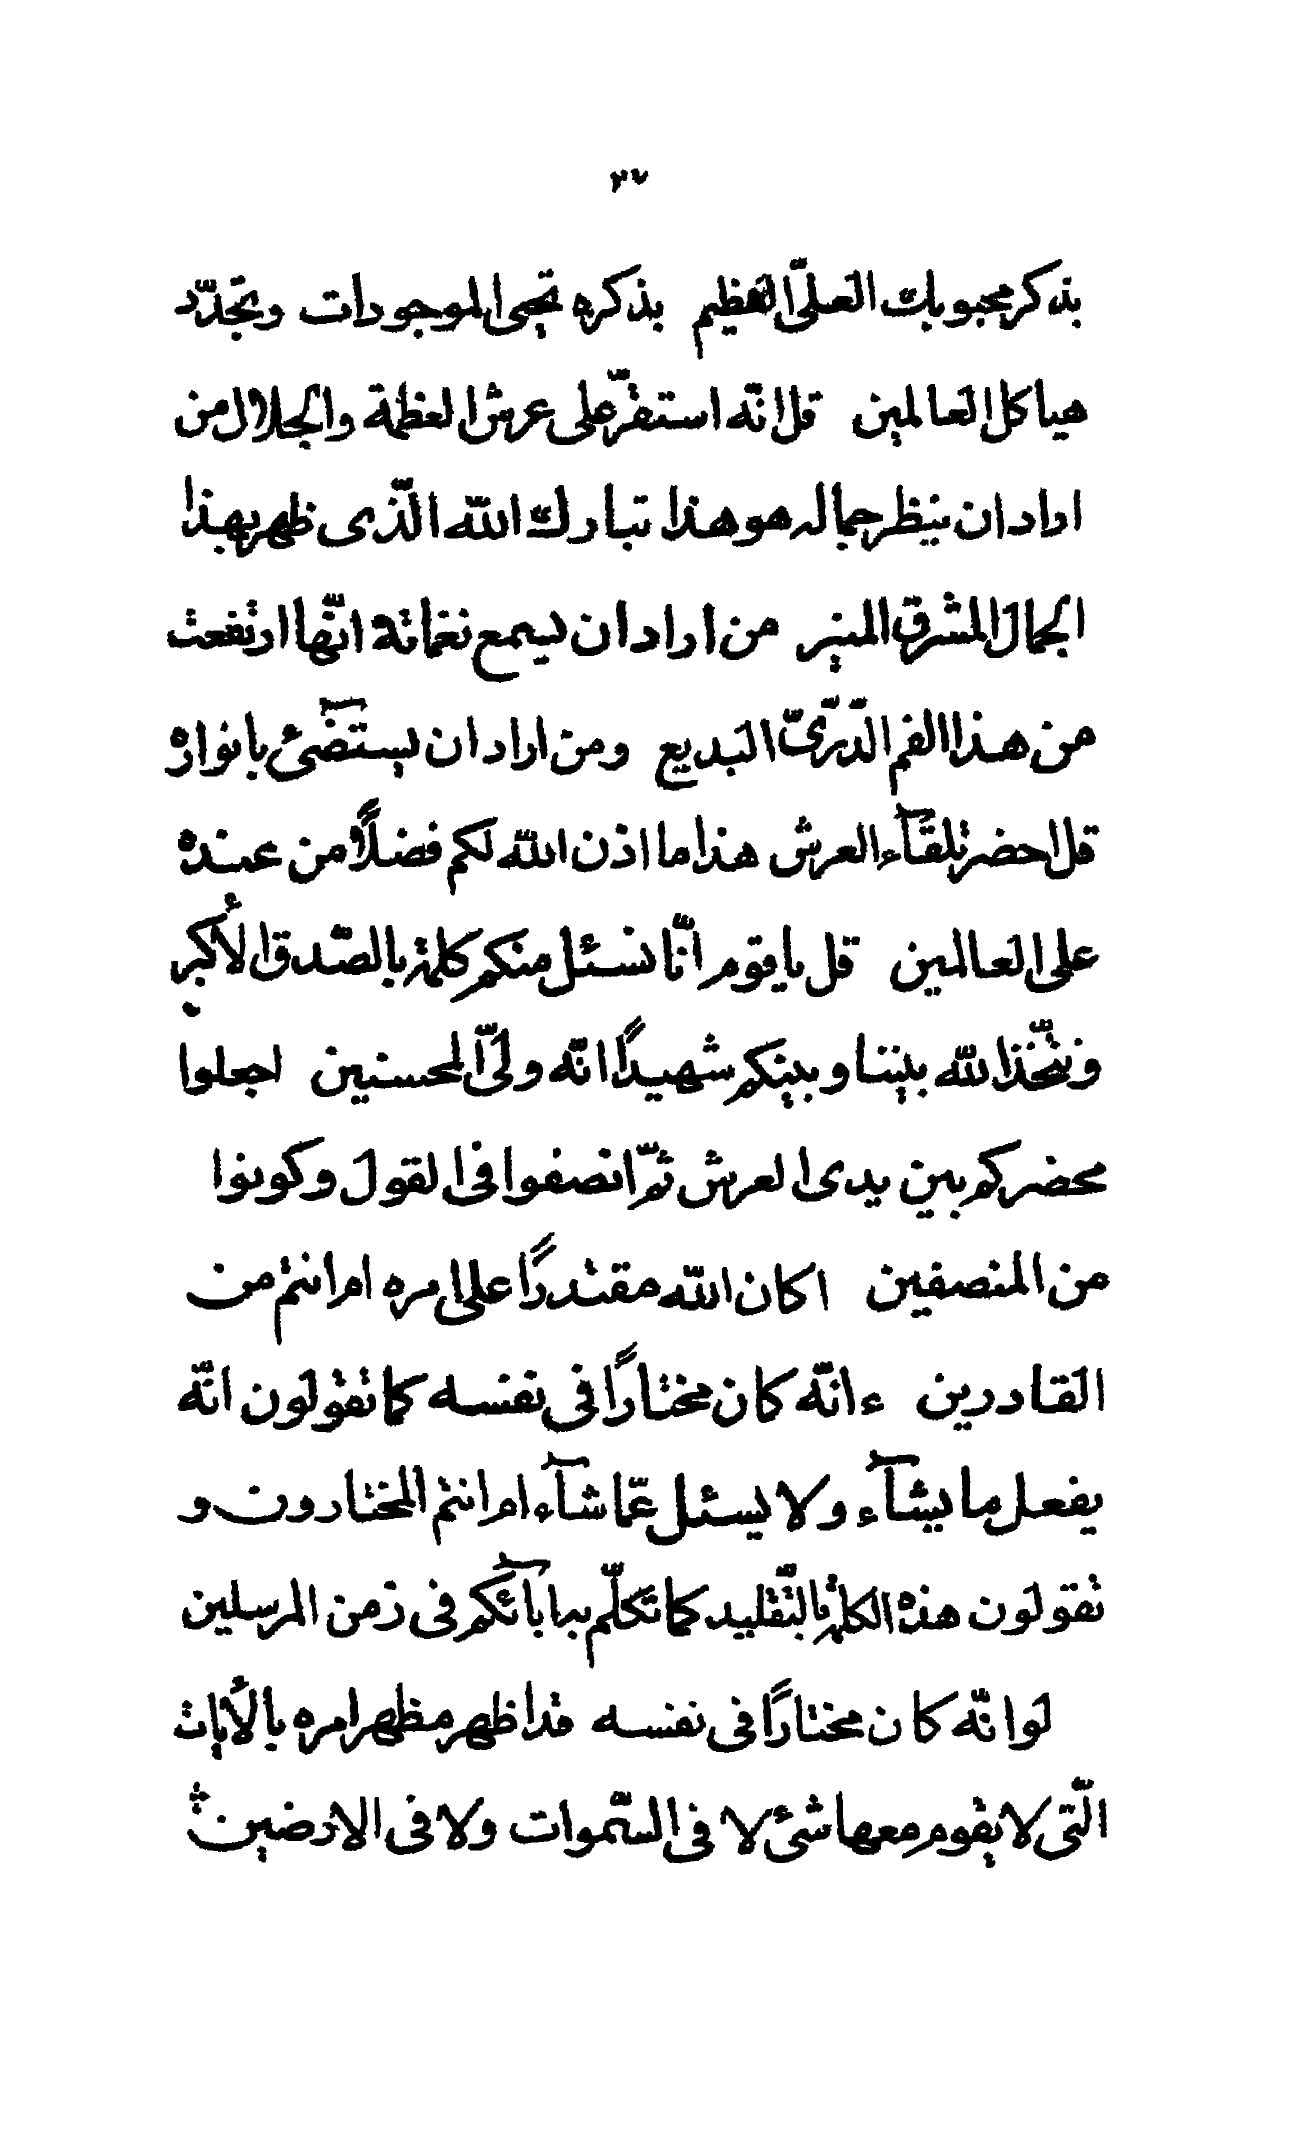 ٣٧
بذكر محبوبك العلىّ العظيم بذكره تحيى الموجودات وتجدّد
هياكل العالمين قل انّه استقرّ على عرش العظمة والجلال من
اراد ان ينظر جماله هو هذا تبارك اللّه الّذى ظهر بهذا
الجمال المشرق المنير من اراد ان يسمع نغماته انّها ارتفعت
من هذا الفم الدّرّىّ البديع ومن اراد ان يستضىٓئ بانواره
قل احضر تلقآء العرش هذا ما اذن اللّه لكم فضلًا من عنده
على العالمين قل يا قوم انّا نسئل منكم كلمة بالصّدق الأكبر
ونتّخذ اللّه بيننا وبينكم شهيدًا انّه ولىّ المحسنين اجعلوا
محضركم بين يدى العرش ثمّ انصفوا فى القول وكونوا
من المنصفين اكان اللّه مقتدرًا على امره ام انتم من
القادرين ءانّه كان مختارًا فى نفسه كما تقولون انّه
يفعل ما يشآء ولا يسئل عمّا شآء ام انتم المختارون و
تقولون هذه الكلمة بالتّقليد كما تكلّم بها آبآئكم فى زمن المرسلين
لو انّه كان مختارًا فى نفسه قد اظهر مظهر امره بالأيات
الّتى لا يقوم معها شئ لا فى السّموات ولا فى الارضين